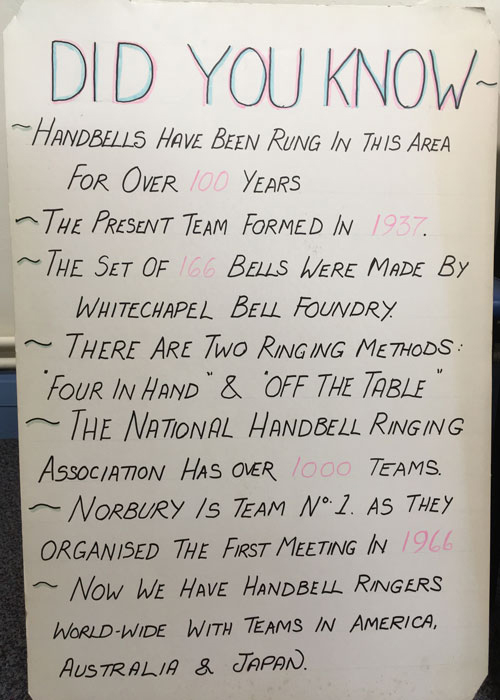 DID YOU KNOW~
~HANDBELLS HAVE BEEN RUNG IN THIS AREA
FOR OVER 100 YEARS
~THE PRESENT TEAM FORMED IN 1937.
~THE SET OF 166 BELLS WERE MADE BY
WHITECHAPEL BELL FOUNDRY.
~ THERE ARE TWO RINGING METHODS:
"FOUR IN HAND" & "OFF THE TABLE"
~ THE NATIONAL HANDBELL RINGING
ASSOCIATION HAS OVER 1000 TEAMS.
~ NORBURY IS TEAM No. 1. AS THEY
ORGANISED THE FIRST MEETING IN 1966
~ NOW WE HAVE HANDBELL RINGERS
WORLD-WIDE WITH TEAMS IN AMERICA,
AUSTRALIA & JAPAN.